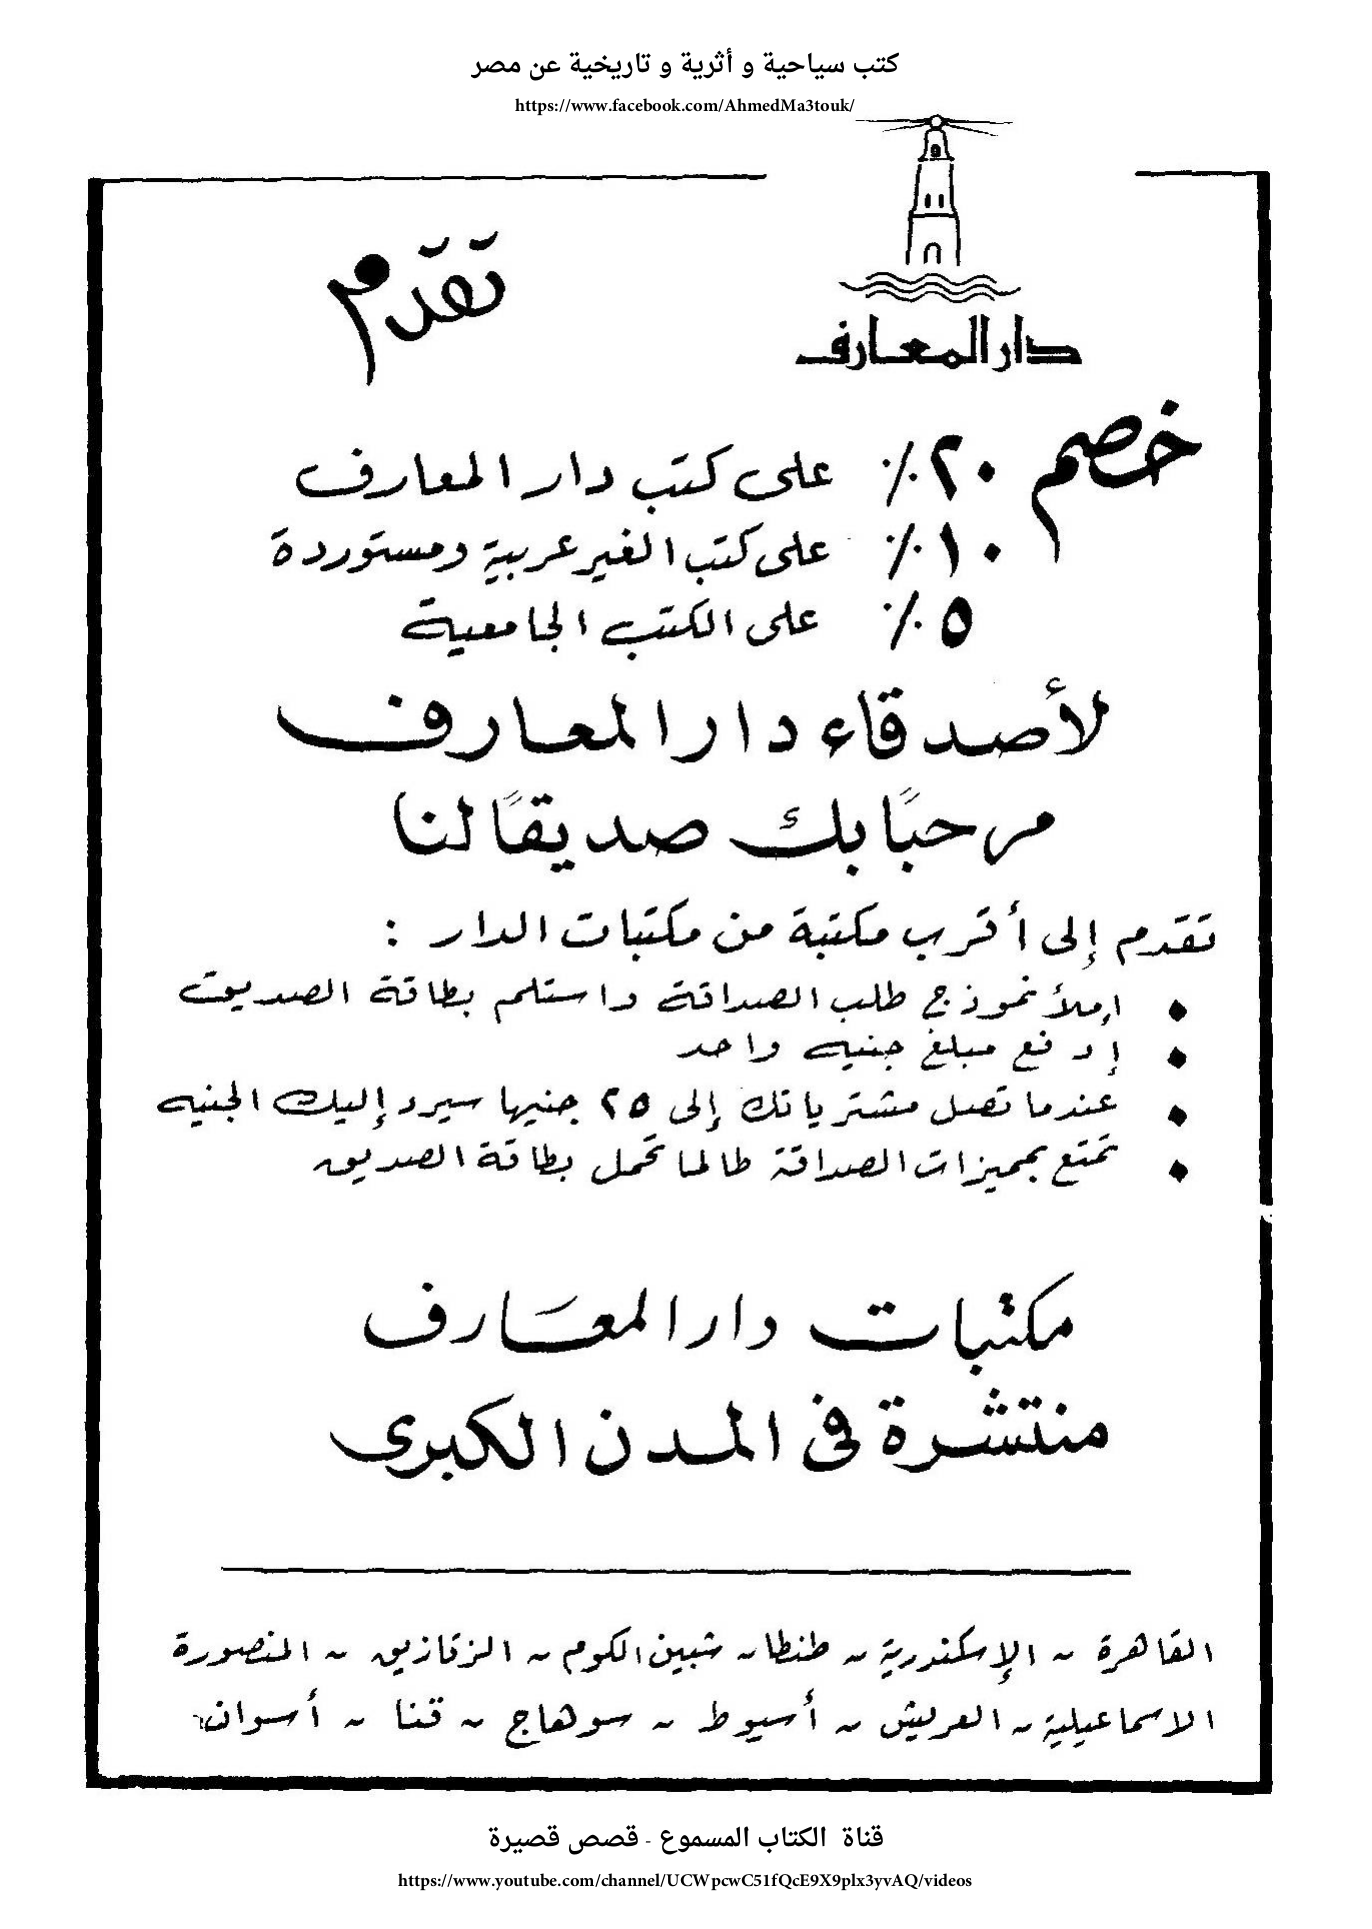 كتب سياحية و أثرية و تاريخية عن مصر
https://www.facebook.com/AhmedMa3touk/
دار المعارف
تقدم
خصم ٢٠٪ على كتب دار المعارف
١٠٪ على كتب الغير عربية ومستوردة
٥٪ على الكتب الجامعية
لأصدقاء دار المعارف
مرحبًا بك صديقًا لنا
تقدم إلى أقرب مكتبة من مكتبات الدار :
• إملأ نموذج طلب الصداقة واستلم بطاقة الصديق
• إدفع مبلغ جنيه واحد
• عندما تصل مشترياتك إلى ٢٥ جنيها سيرد إليك الجنيه
• تمتع بمميزات الصداقة طالما تحمل بطاقة الصديق
مكتبات دار المعارف
منتشرة فى المدن الكبرى
القاهرة ~ الإسكندرية ~ طنطا ~ شبين الكوم ~ الزقازيق ~ المنصورة
الاسماعيلية ~ العريش ~ أسيوط ~ سوهاج ~ قنا ~ أسوان
قناة الكتاب المسموع - قصص قصيرة
https://www.youtube.com/channel/UCWpcwC51fQcE9X9plx3yvAQ/videos